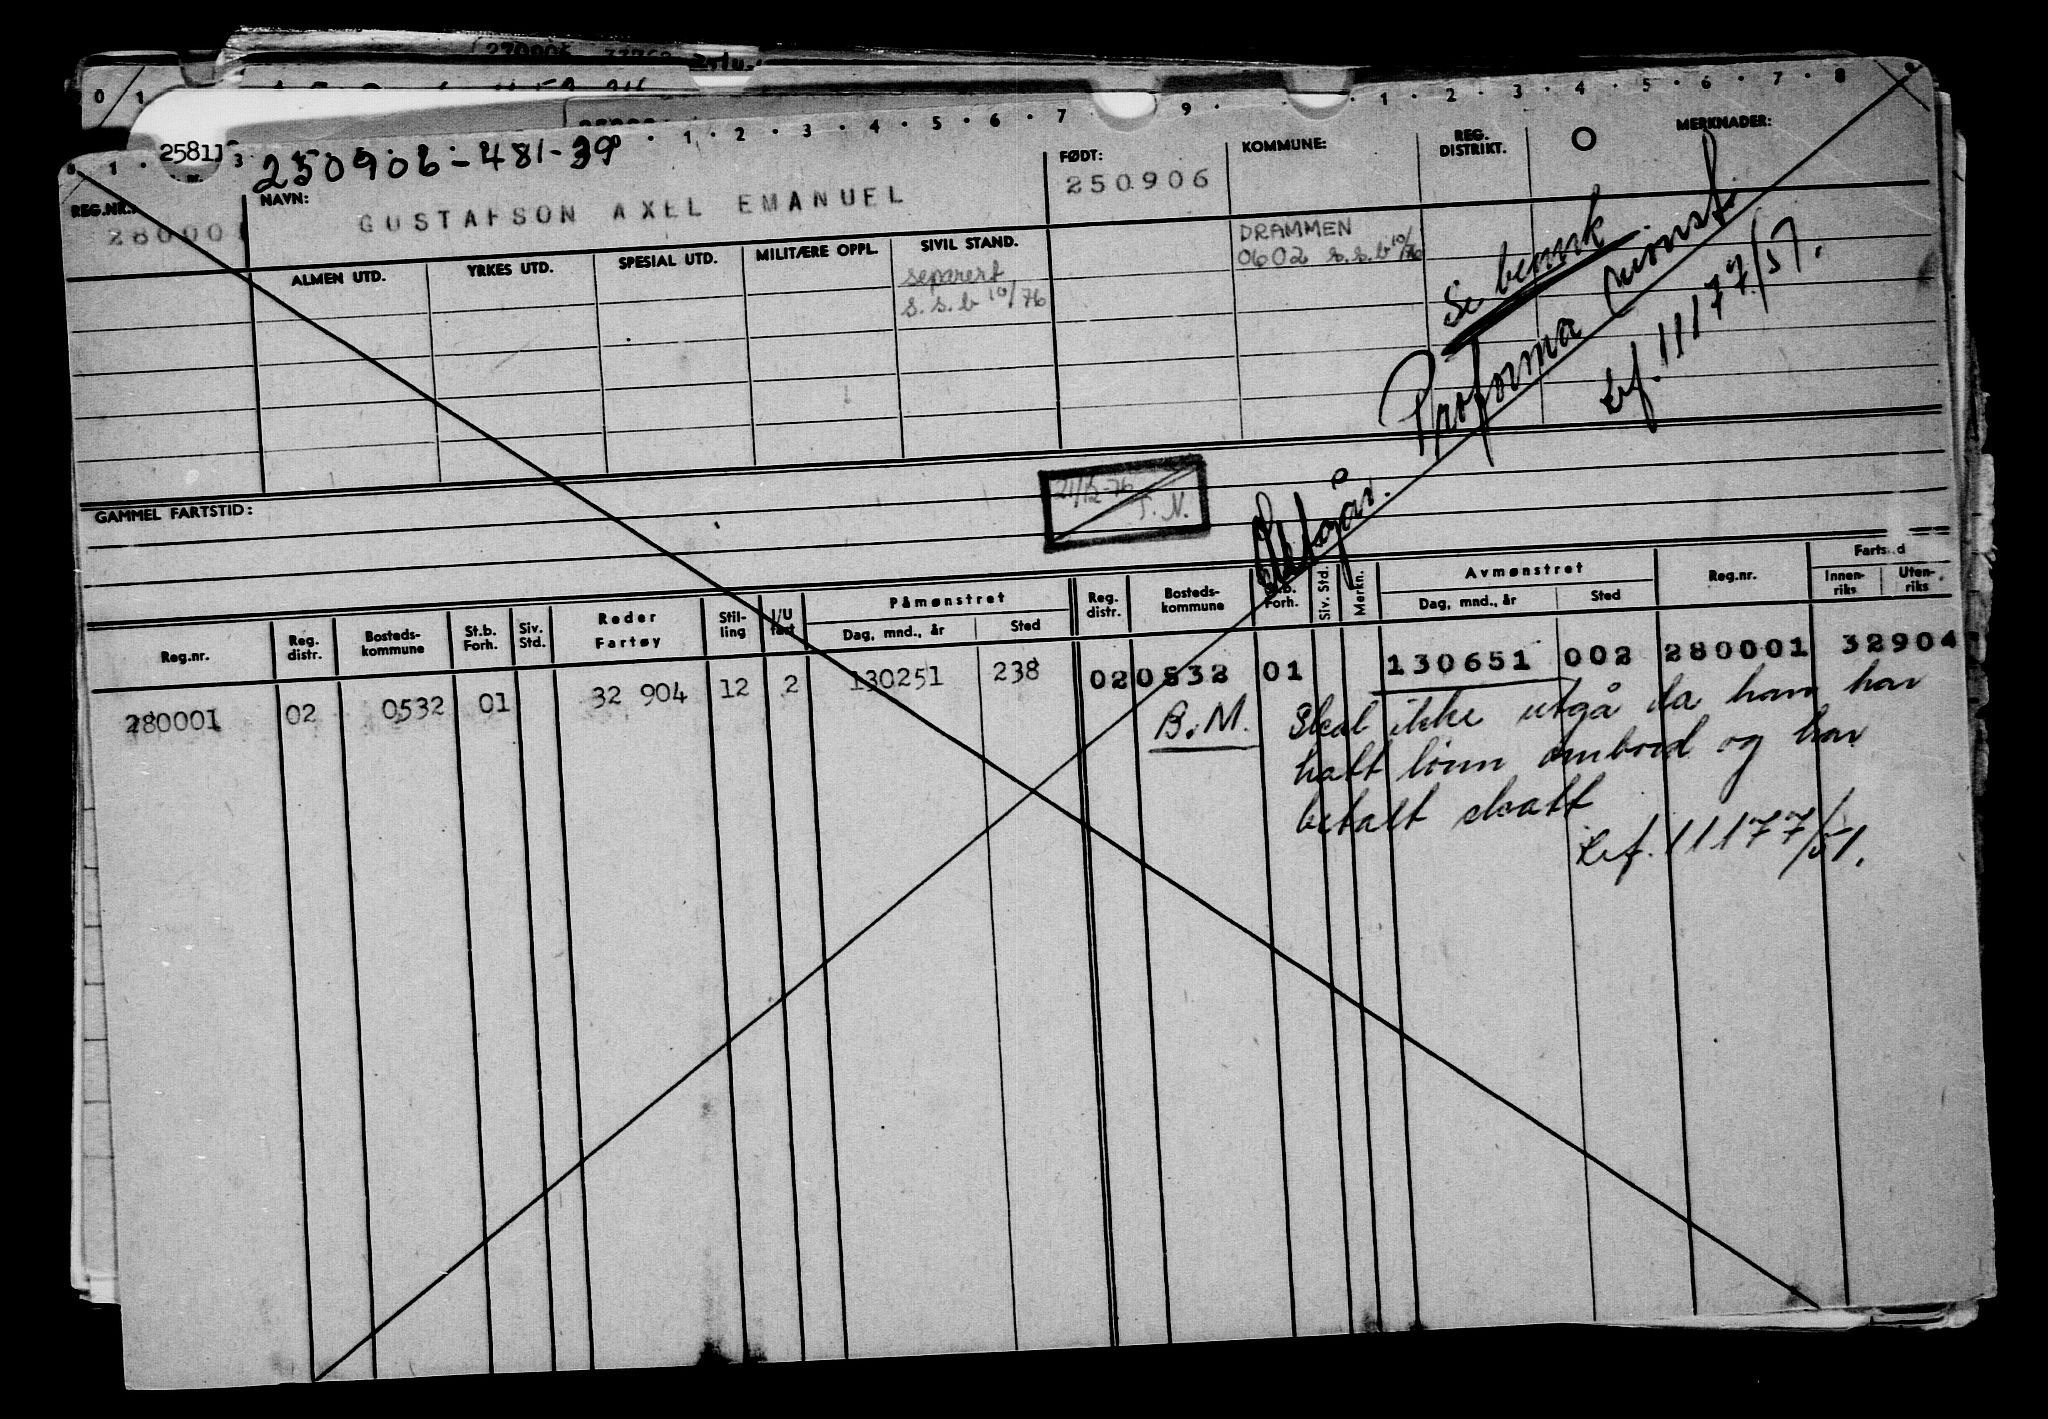 270006
0 1
25811
0 1 3 1 2 3 4 5 6 7 9 1 2 3 4 5 6 7 8 9
250906-481-39
REG.NR.:
280001
NAVN:
GUSTAFSON AXEL EMANUEL
FØDT:
250906
KOMMUNE:
REG.
DISTRIKT.
MERKNADER:
DRAMMEN
0602 s.s.b 10/76
ALMEN UTD.
YRKES UTD.
SPESIAL UTD.
MILITÆRE OPPL.
SIVIL STAND.
separert
s.s.b 10/76
Se bemk
Proforma mønst.
ref. 11177/51.
GAMMEL FARTSTID:
21/12-76
T.N.
Utgår.
Reg.nr.
Reg.
distr.
Bosteds-
kommune
St.b.
Forh.
Siv.
Std.
Reder
Fartøy
Stil-
ling
I/U
fart
Påmønstret
Dag, mnd., år
Sted
Reg.
distr.
Bosteds-
kommune
St.b.
Forh.
Siv. Std.
Merkn.
Avmønstret
Dag, mnd., år
Sted
Reg.nr.
Fartstid
Innen-
riks
Uten-
riks
280001 02 0532 01 32 904 12 2 130251 238 02 0532 01 130651 002 280001 32904
B.M. Skal ikke utgå da han har
hatt lønn ombord og har
betalt skatt
ref. 11177/51.